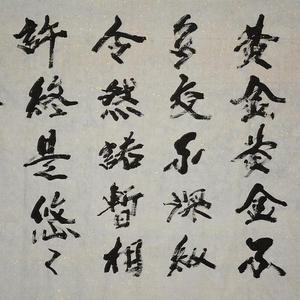 黄金黄金不
多交不深縱
令然諾暫相
許終是悠々